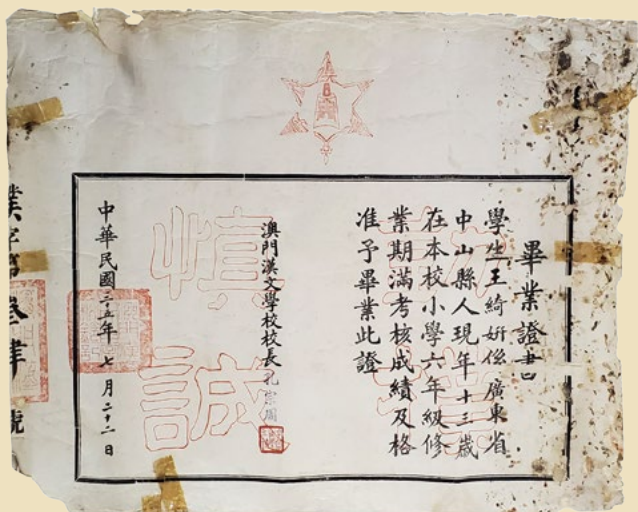 畢業證書
學生王綺妍係廣東省
中山縣人現年十三歲
在本校小學六年級修
業期滿考核成績及格
准予畢業此證
澳門漢文學校校長孔宗周
慎
誠
中華民國三五年七月二十二日
業字第叁肆號